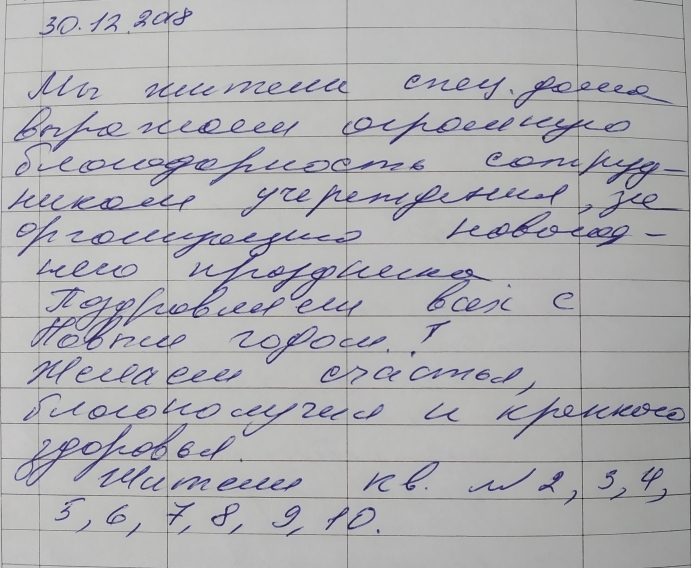 30.12.2018
Мы жители спец. дома
выражаем огромную
благодарность сотруд-
никам учереждения, за
организацию новогод-
него праздника
Поздравляем всех с
Новым годом.!
Желаем счастья,
благополучия и крепкого
здоровья.
Жители кв. № 2, 3, 4,
5, 6, 7, 8, 9, 10.